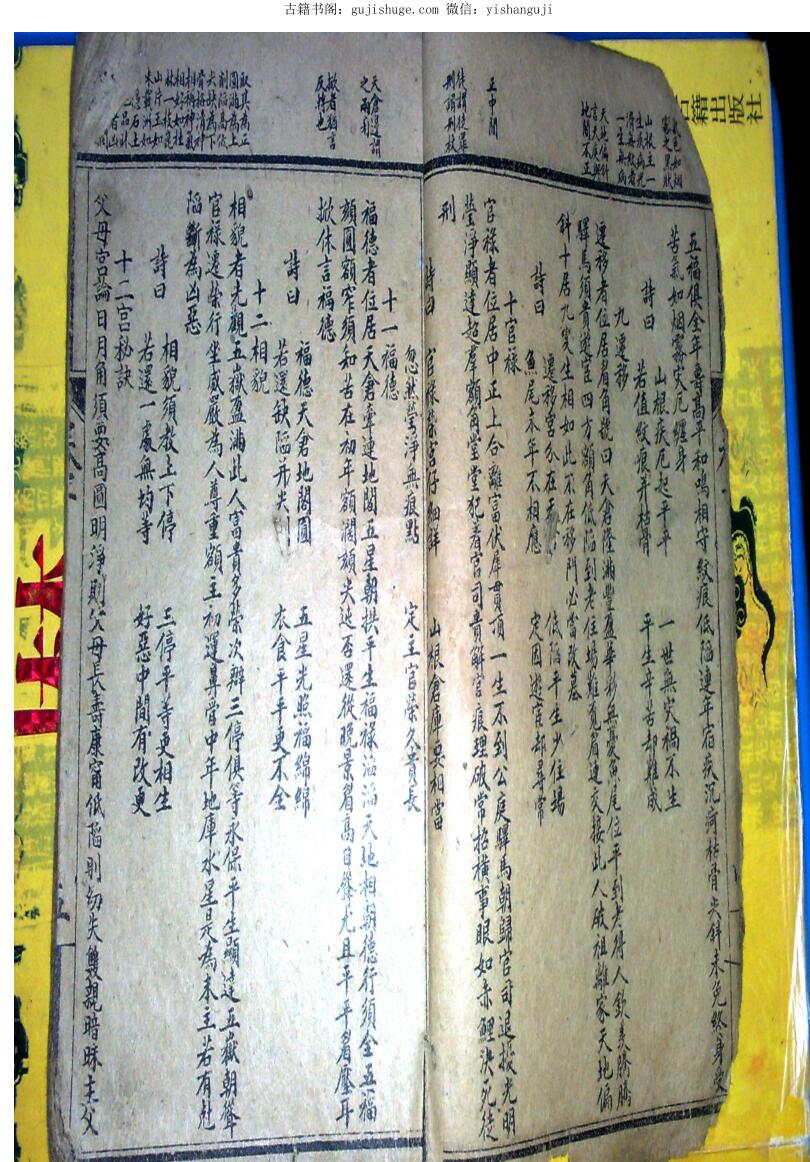 古籍书阁：gujishuge.com 微信：yishanguji
古籍出版社
五福俱全年壽高平和鳴相守紋痕低陷連年宿疾沉疴枯骨尖斜未免終身受
苦氣如烟霧災厄纏身
詩曰 山根疾厄起平平 一世無災禍不生
若值紋痕并枯骨 平生辛苦却難成
九遷移
遷移者位居眉角號曰天倉隆滿豐盈華彩無憂魚尾位平到老得人欽羨騰騰
驛馬須貴遊宦四方額角低陷到老住場難覓眉連交接此人破祖離家天地偏
斜十居九變生相如此不在移門必當改墓
詩曰 遷移宮分在天倉 低陷平生少住場
魚尾末年不相應 定因遊宦却尋常
十官祿
官祿者位居中正上合離宮伏犀貫頂一生不到公庭驛馬朝歸官司退擾光明
瑩淨顯達超羣額角堂堂犯着官司貴解宮痕理破常招橫事眼如赤鯉決死徒
刑
詩曰 官祿榮宮仔細詳 山根倉庫要相當
忽然瑩淨無痕點 定主官榮久貴長
十一福德
福德者位居天倉牽連地閣五星朝拱平生福祿滔滔天地相朝德行須全五福
頦圓額窄須知苦在初年額濶頦尖迍否還從晚景眉高目聳尤且平平眉壓耳
掀休言福德
詩曰 福德天倉地閣圓 五星光照福綿綿
若還缺陷并尖削 衣食平平更不全
十二相貌
相貌者先觀五嶽盈滿此人富貴多榮次辦三停俱等永保平生顯達五嶽朝聳
官祿遷榮行坐威嚴為人尊重額主初運鼻管中年地庫水星是為末主若有尅
陷斷為凶惡
詩曰 相貌須教上下停 三停平等更相生
若還一處無均等 好惡中間有改更
十二宮秘訣
父母宮論日月角須要高圓明淨則父母長壽康甯低陷則幼失雙親暗昧主父
山根主一
生疾病光
一生無病
天地偏斜
言天庭與
地閣不正
正中間
徒謂徒罪
刑謂刑杖
天倉邊謂
之兩頰
掀者猶言
反轉也
取其為正
圓滿為上
削陷高低
尖缺為下